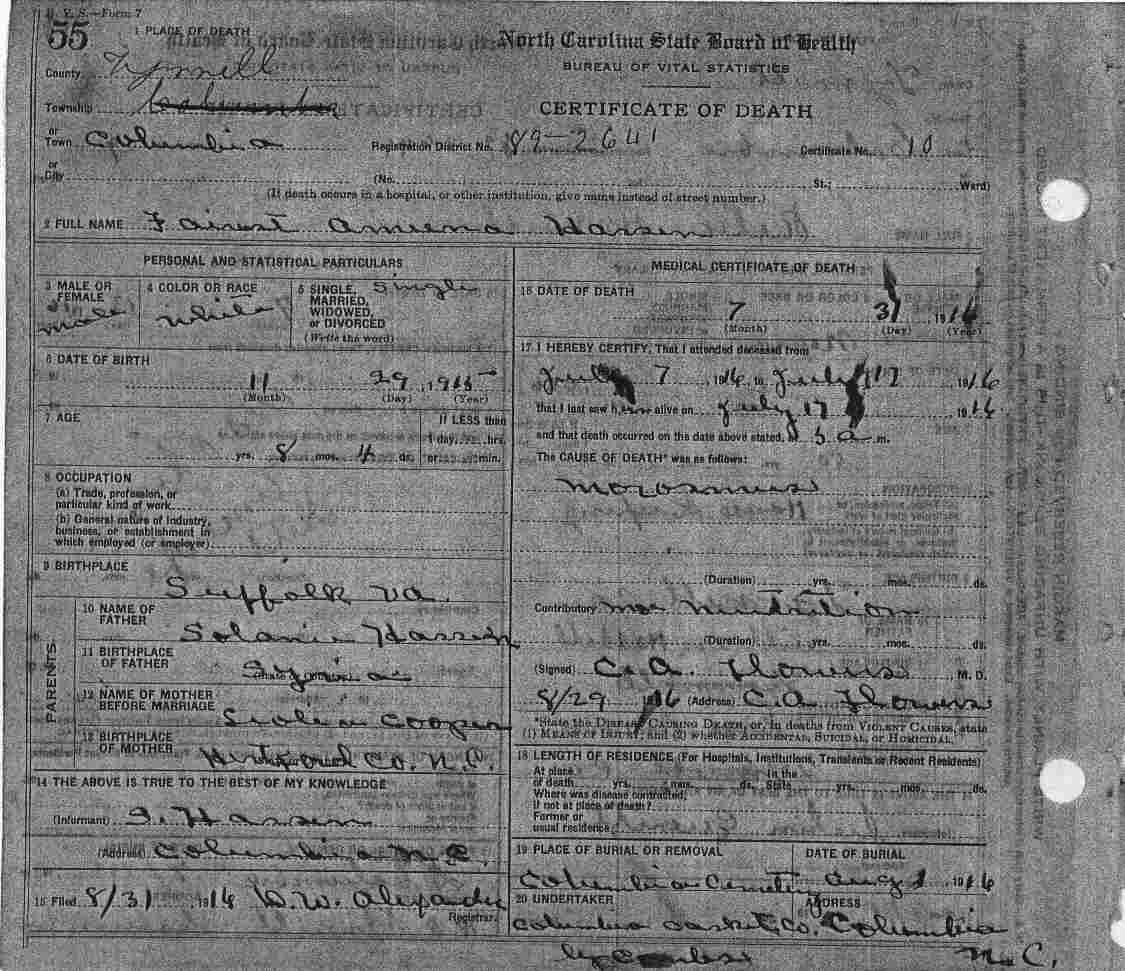 N. C. V. S.—Form 7
55
1 PLACE OF DEATH
North Carolina State Board of Health
BUREAU OF VITAL STATISTICS
CERTIFICATE OF DEATH
County Tyrrell
Township
or Town Columbia Registration District No. 89-2641 Certificate No. 10
or City (No. St.; Ward)
(If death occurs in a hospital, or other institution, give name instead of street number.)
2 FULL NAME Ameena Hassen
PERSONAL AND STATISTICAL PARTICULARS
3 MALE OR FEMALE Male
4 COLOR OR RACE White
5 SINGLE, MARRIED, WIDOWED, or DIVORCED (Write the word) Single
6 DATE OF BIRTH
11 29 1915
(Month) (Day) (Year)
7 AGE
If LESS than
1 day, hrs.
yrs. 8 mos. 4 ds. or min.
8 OCCUPATION
(a) Trade, profession, or
particular kind of work
(b) General nature of industry,
business, or establishment in
which employed (or employer)
9 BIRTHPLACE
Suffolk Va.
PARENTS
10 NAME OF FATHER
Hassen
11 BIRTHPLACE OF FATHER
Syria
12 NAME OF MOTHER BEFORE MARRIAGE
Cooper
13 BIRTHPLACE OF MOTHER
Hertford Co. N.C.
14 THE ABOVE IS TRUE TO THE BEST OF MY KNOWLEDGE
(Informant) S. Hassen
(Address) Columbia N.C.
15 Filed 8/31 1916 W. Alexander
Registrar.
MEDICAL CERTIFICATE OF DEATH
16 DATE OF DEATH
7 31 1916
(Month) (Day) (Year)
17 I HEREBY CERTIFY, That I attended deceased from
July 7, 1916 to July 17 1916
that I last saw h alive on July 17 1916
and that death occurred on the date above stated, at 3 a m.
The CAUSE OF DEATH* was as follows:
Morosmus
(Duration) yrs. mos. ds.
Contributory Mal Nutrition
(Duration) yrs. mos. ds.
(Signed) C. A. Flowers M. D.
8/29 1916 (Address) C.A. Flowers
*State the DISEASE CAUSING DEATH, or, in deaths from VIOLENT CAUSES, state
(1) MEANS OF INJURY; and (2) whether ACCIDENTAL, SUICIDAL, or HOMICIDAL.
18 LENGTH OF RESIDENCE (For Hospitals, Institutions, Transients or Recent Residents)
At place of death yrs. mos. ds. In the State yrs. mos. ds.
Where was disease contracted,
if not at place of death?
Former or
usual residence
19 PLACE OF BURIAL OR REMOVAL
Columbia Cemetery
DATE OF BURIAL
Aug 1 1916
20 UNDERTAKER
Columbia Casket Co.
ADDRESS
Columbia
N.C.